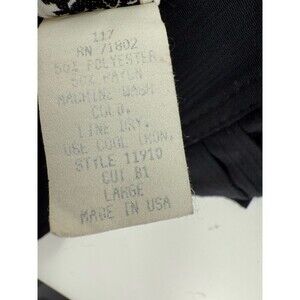 117
RN 71802
50% POLYESTER
50% RAYON
MACHINE WASH
COLD.
LINE DRY.
USE COOL IRON.
STYLE 11910
CUT B1
LARGE
MADE IN USA